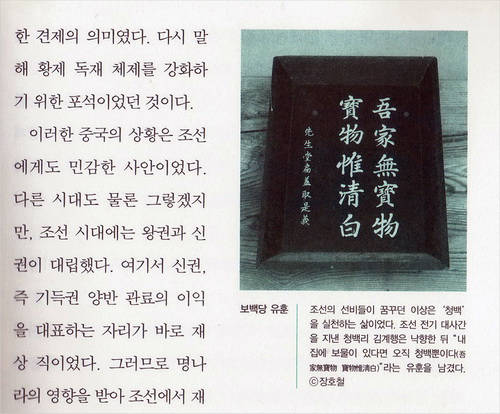 한 견제의 의미였다. 다시 말
해 황제 독재 체제를 강화하
기 위한 포석이었던 것이다.
이러한 중국의 상황은 조선
에게도 민감한 사안이었다.
다른 시대도 물론 그렇겠지
만, 조선 시대에는 왕권과 신
권이 대립했다. 여기서 신권,
즉 기득권 양반 관료의 이익
을 대표하는 자리가 바로 재
상 직이었다. 그러므로 명나
라의 영향을 받아 조선에서 재
吾家無寶物
寶物惟清白
先生堂扁蓋取是義
보백당 유훈
조선의 선비들이 꿈꾸던 이상은 '청백'
을 실천하는 삶이었다. 조선 전기 대사간
을 지낸 청백리 김계행은 낙향한 뒤 "내
집에 보물이 있다면 오직 청백뿐이다(吾
家無寶物 寶物惟清白)"라는 유훈을 남겼다.
ⓒ장호철